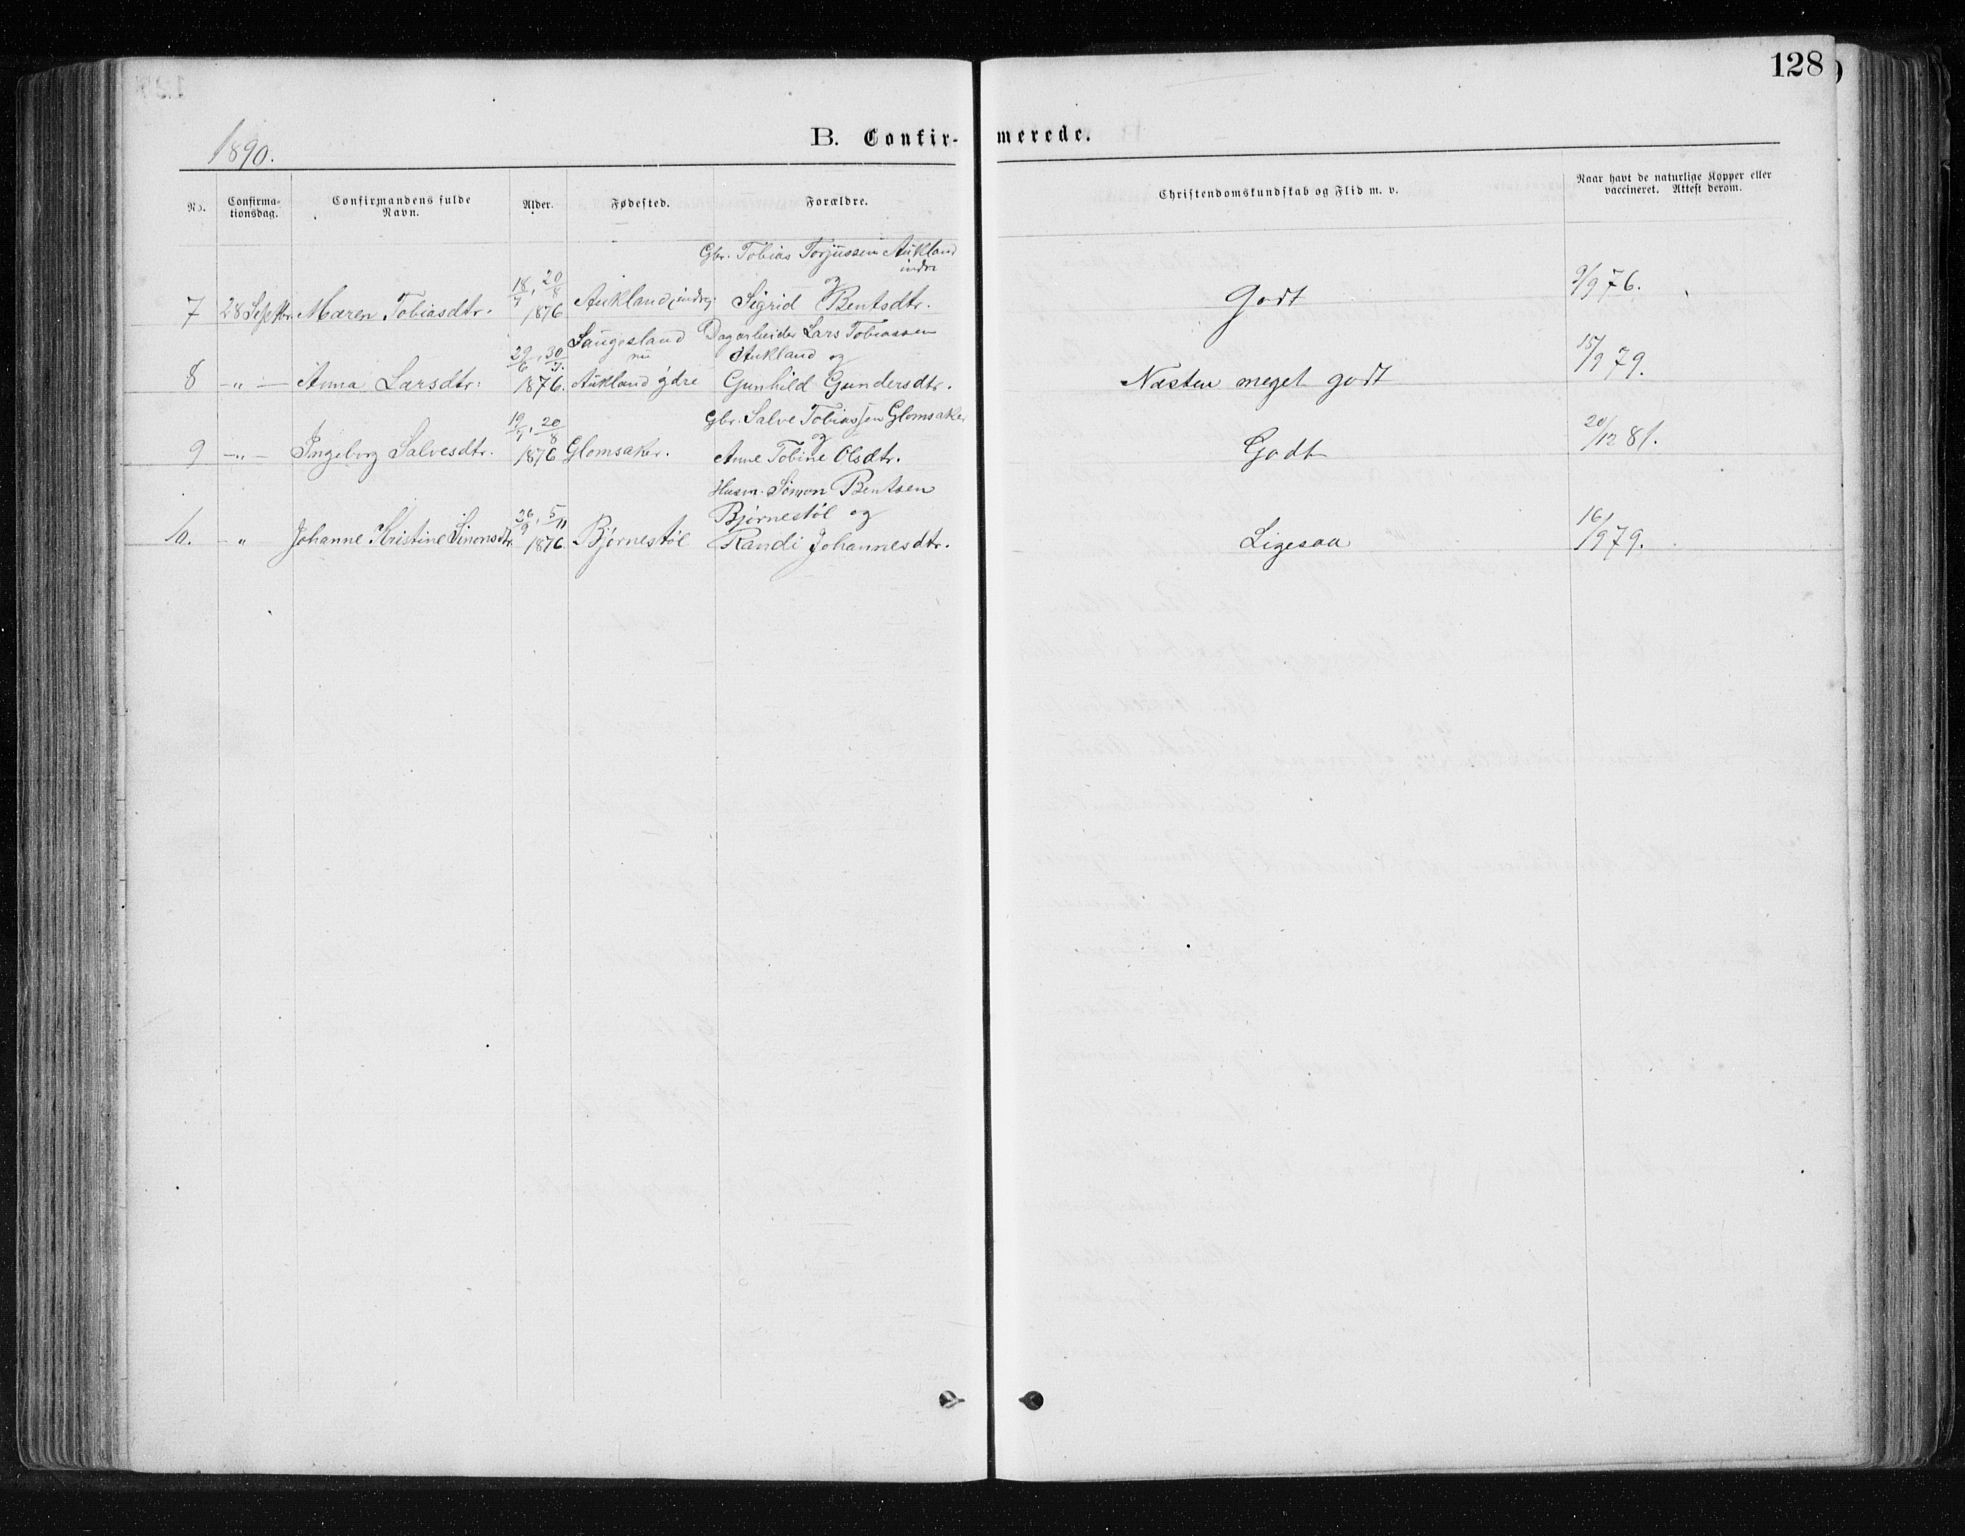 128
1890.
B. Confir-merede.
No.
Confirma-
tionsdag.
Confirmandens fulde
Navn.
Alder.
Fødested.
Forældre.
Christendomskundskab og Flid m. v.
Naar havt de naturlige Kopper eller
vaccineret. Attest derom.
Gbr. Tobias Torjussen Aukland
indre
18/7, 20/8 og 9/9 76.
7 28 Septbr. Maren Tobiasdtr. 1876 Aukland, indre, Sigrid Bentsdtr. Godt
Saugesland Dagarbeider Lars Tobiassen
29/6, 30/7 nu Aukland og 15/9 79.
8 -"- Anna Larsdtr. 1876. Aukland ydre Gunhild Gundersdtr. Næsten meget godt
Gbr. Salve Tobiassen Glomsaker
19/7, 20/8 og 20/12 81.
9 -"- Ingeborg Salvesdtr. 1876 Glomsaker. Anne Tobine Olsdtr. Godt
Husm. Simon Bentsen
26/9, 5/11 Bjørnestøl og 16/9 79.
10. -" Johanne Kristine Simonsdtr. 1876 Bjørnestøl Randi Johannesdtr. Ligesaa